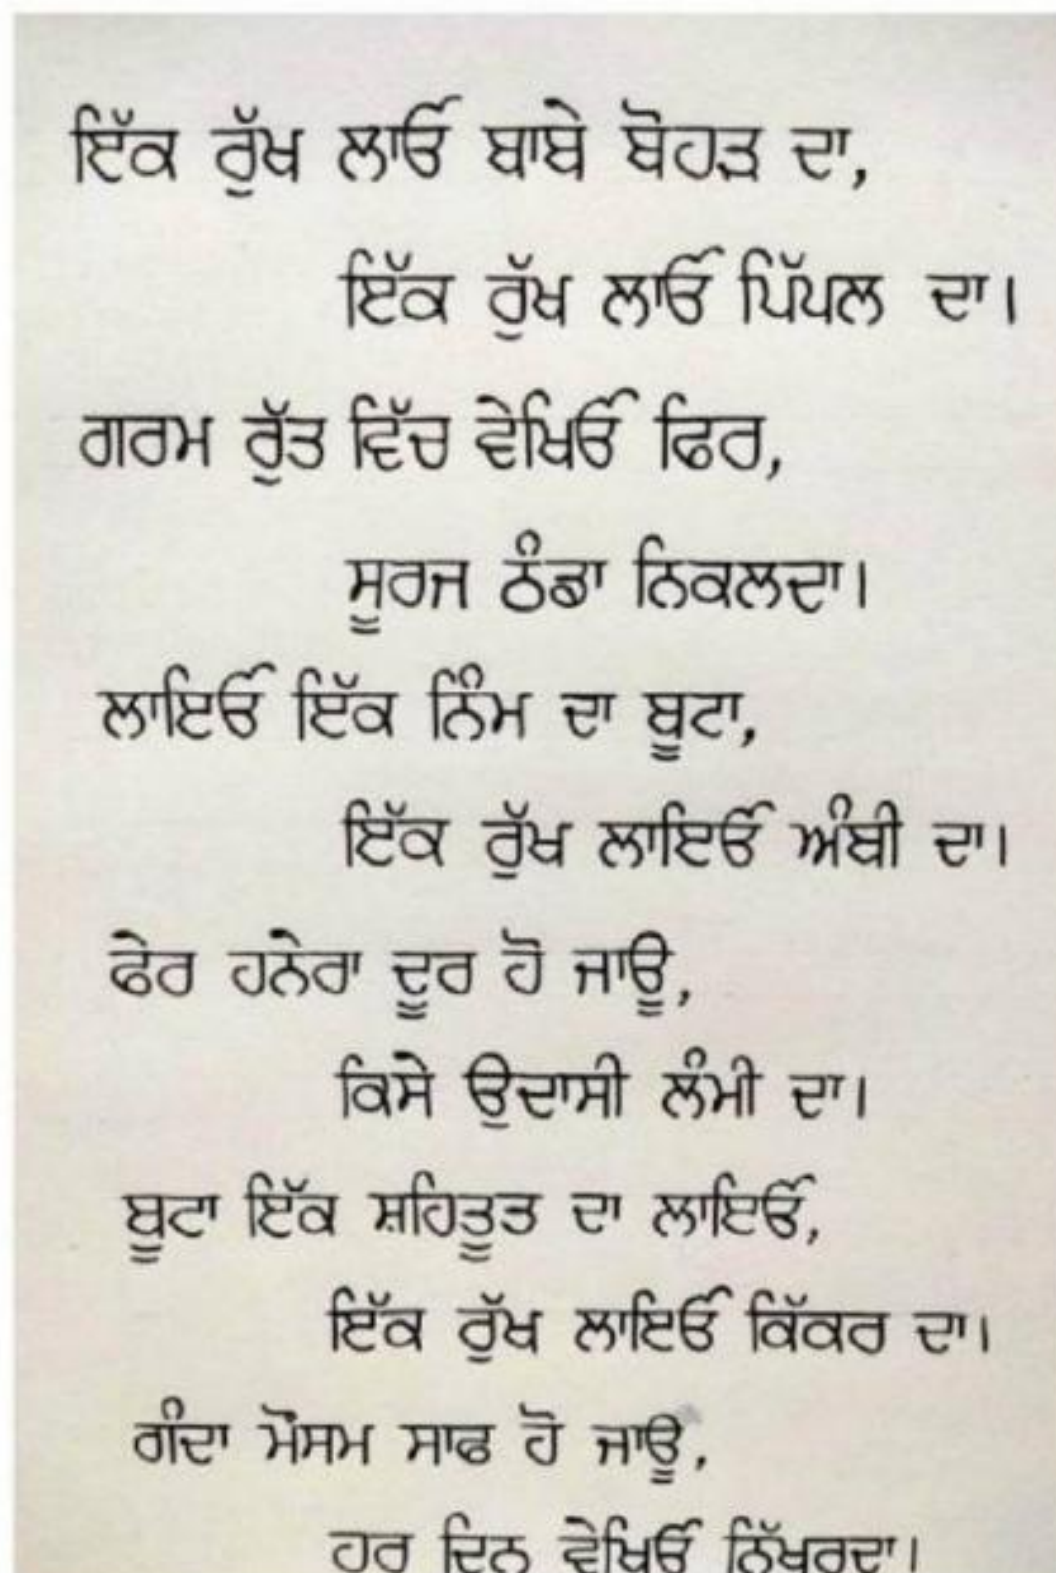 ਇੱਕ ਰੁੱਖ ਲਾਓ ਬਾਬੇ ਬੋਹੜ ਦਾ,
ਇੱਕ ਰੁੱਖ ਲਾਓ ਪਿੱਪਲ ਦਾ।
ਗਰਮ ਰੁੱਤ ਵਿੱਚ ਵੇਖਿਓ ਫਿਰ,
ਸੂਰਜ ਠੰਡਾ ਨਿਕਲਦਾ।
ਲਾਇਓ ਇੱਕ ਨਿੰਮ ਦਾ ਬੂਟਾ,
ਇੱਕ ਰੁੱਖ ਲਾਇਓ ਅੰਬੀ ਦਾ।
ਫੇਰ ਹਨੇਰਾ ਦੂਰ ਹੋ ਜਾਊ,
ਕਿਸੇ ਉਦਾਸੀ ਲੰਮੀ ਦਾ।
ਬੂਟਾ ਇੱਕ ਸ਼ਹਿਤੂਤ ਦਾ ਲਾਇਓ,
ਇੱਕ ਰੁੱਖ ਲਾਇਓ ਕਿੱਕਰ ਦਾ।
ਗੰਦਾ ਮੌਸਮ ਸਾਫ ਹੋ ਜਾਊ,
ਹਰ ਦਿਨ ਵੇਖਿਓ ਨਿੱਖਰਦਾ।